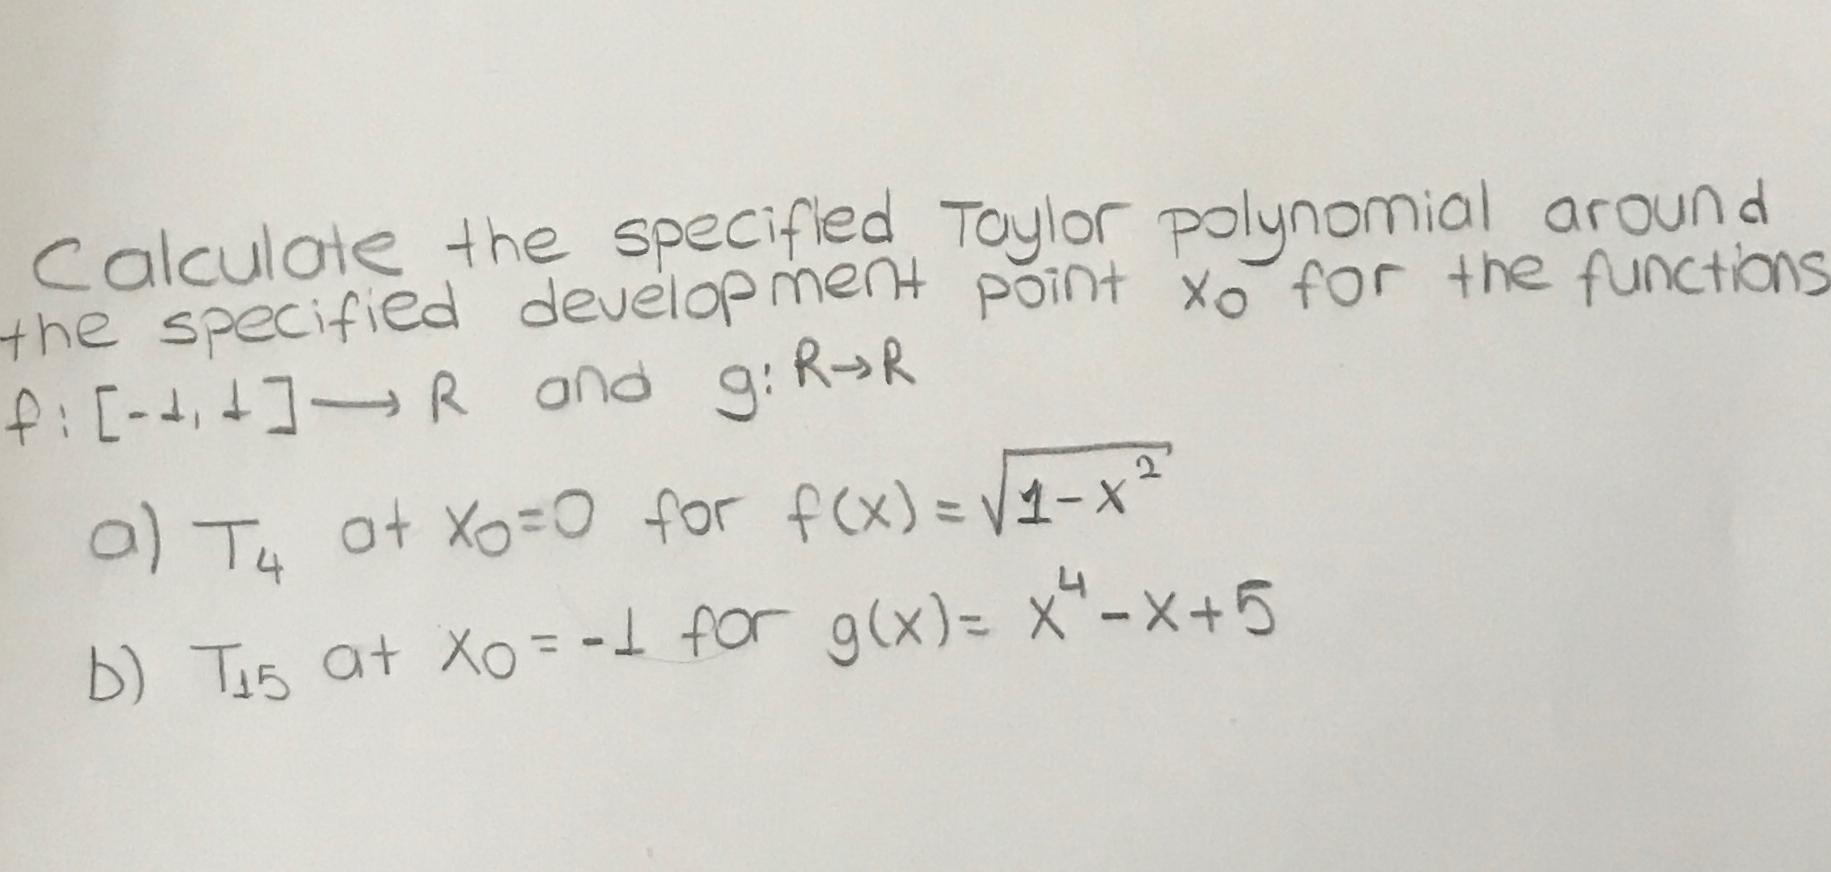 Calculate the specified Taylor polynomial around
the specified development point x₀ for the functions
f: [-1, 1] → R and g: R→R
a) T₄ at x₀=0 for f(x) = √(1-x²)
b) T₁₅ at x₀ = -1 for g(x) = x⁴-x+5